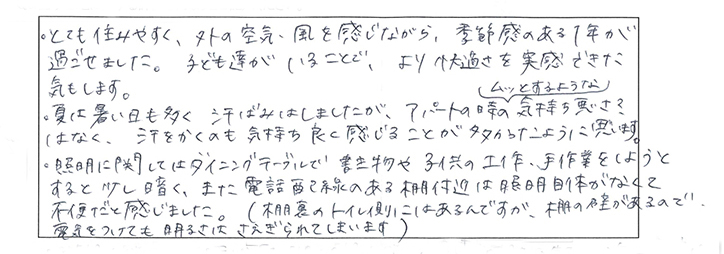 ・とても住みやすく、外の空気、風を感じながら、季節感のある1年が
過ごせました。子ども達がいることで、より快適さを実感できた
気もします。
ムッとするような
・夏は暑い日も多く汗ばみはしましたが、アパートの時の気持ち悪さで
はなく、汗をかくのも気持ち良く感じることが多かったように思います。
・照明に関してはダイニングテーブルで書き物や子供の工作、手作業をしようと
すると少し暗く、また電話配線のある棚付近は照明自体がなくて
不便だと感じました。(棚裏のトイレ側にはあるんですが、棚の壁があるので、
電気をつけても明るさはさえぎられてしまいます)